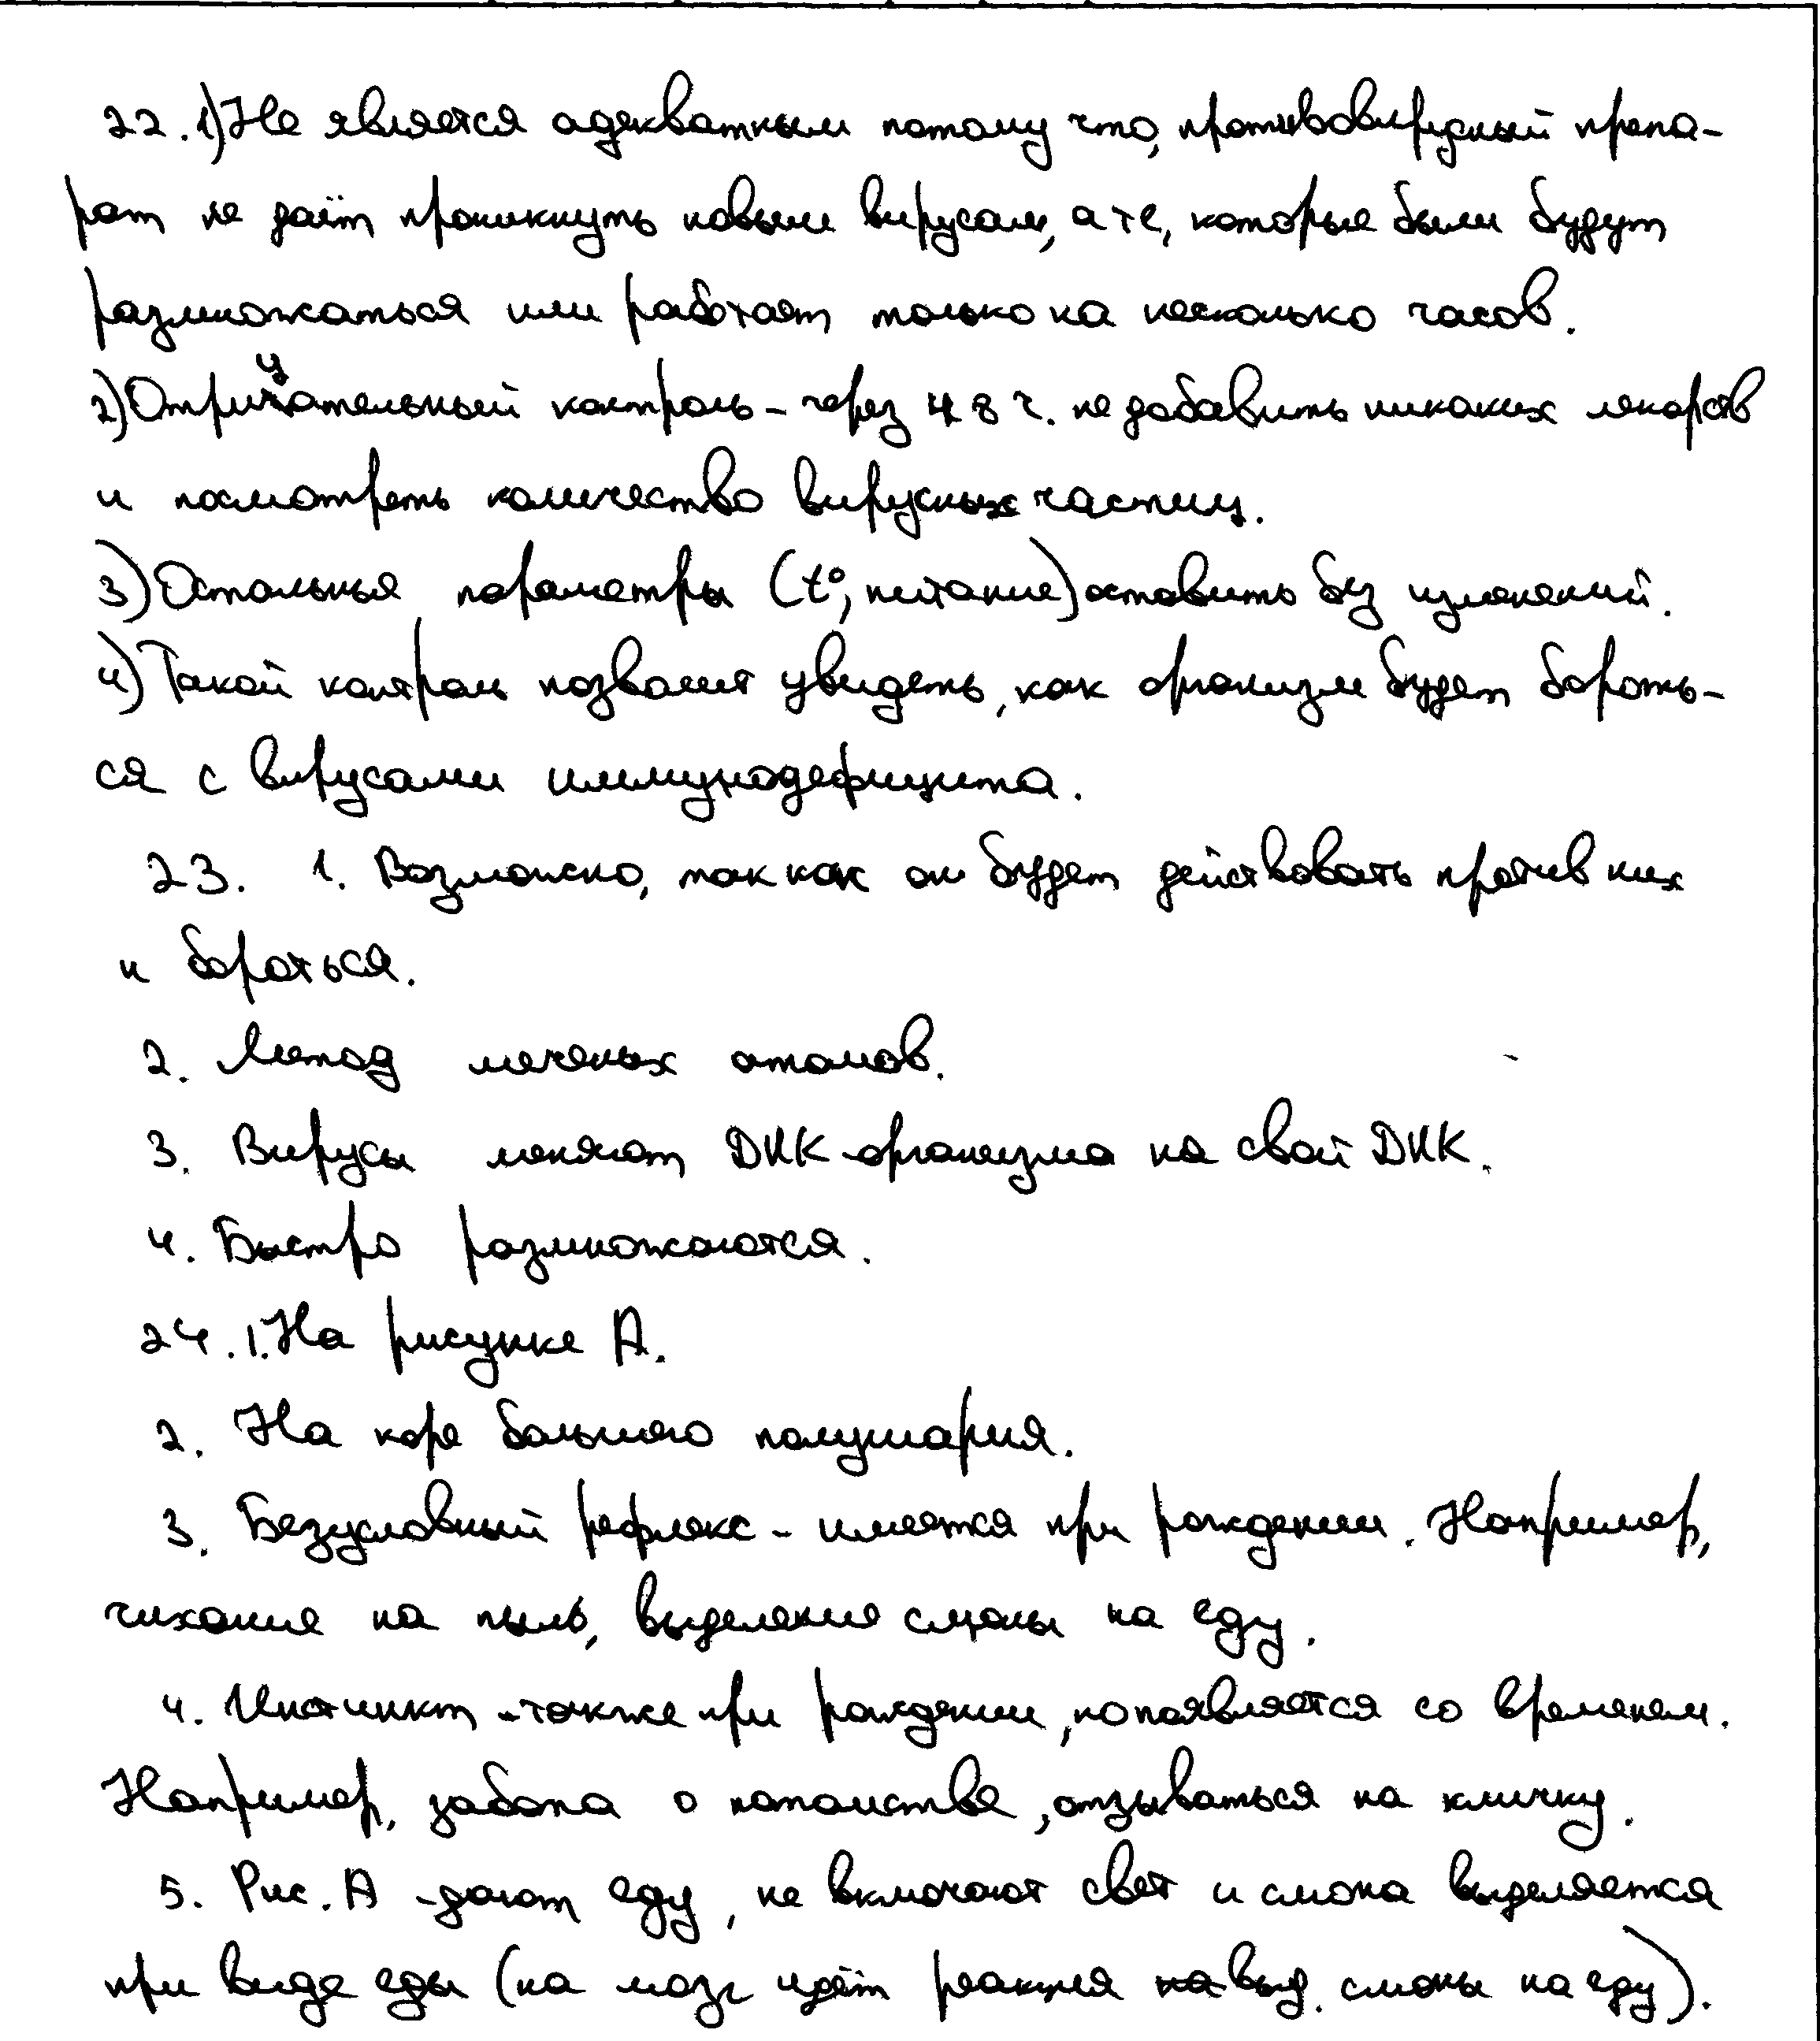 22. 1) Не является адекватным потому что, противовирусный препа-
рат не даёт проникнуть новым вирусам, а те, которые были будут
размножаться или работает только на несколько часов.
2) Отрицательный контроль - через 48 ч. не добавить никаких лекарств
и посмотреть количество вирусных частиц.
3) Остальные параметры (t°, питание) оставить без изменений.
4) Такой контроль позволит увидеть, как организм будет бороть-
ся с вирусами иммунодефицита.
23. 1. Возможно, так как он будет действовать против них
и бороться.
2. Метод меченых атомов.
3. Вирусы меняют ДНК организма на свой ДНК.
4. Быстро размножаются.
24. 1. На рисунке А.
2. На коре большого полушария.
3. Безусловный рефлекс - имеется при рождении. Например,
чихание на пыль, выделение слюны на еду.
4. Инстинкт - также при рождении, но появляется со временем.
Например, забота о потомстве, отзываться на кличку.
5. Рис. А - дают еду, не включают свет и слюна выделяется
при виде еды (на мозг идёт реакция на выд. слюны на еду).